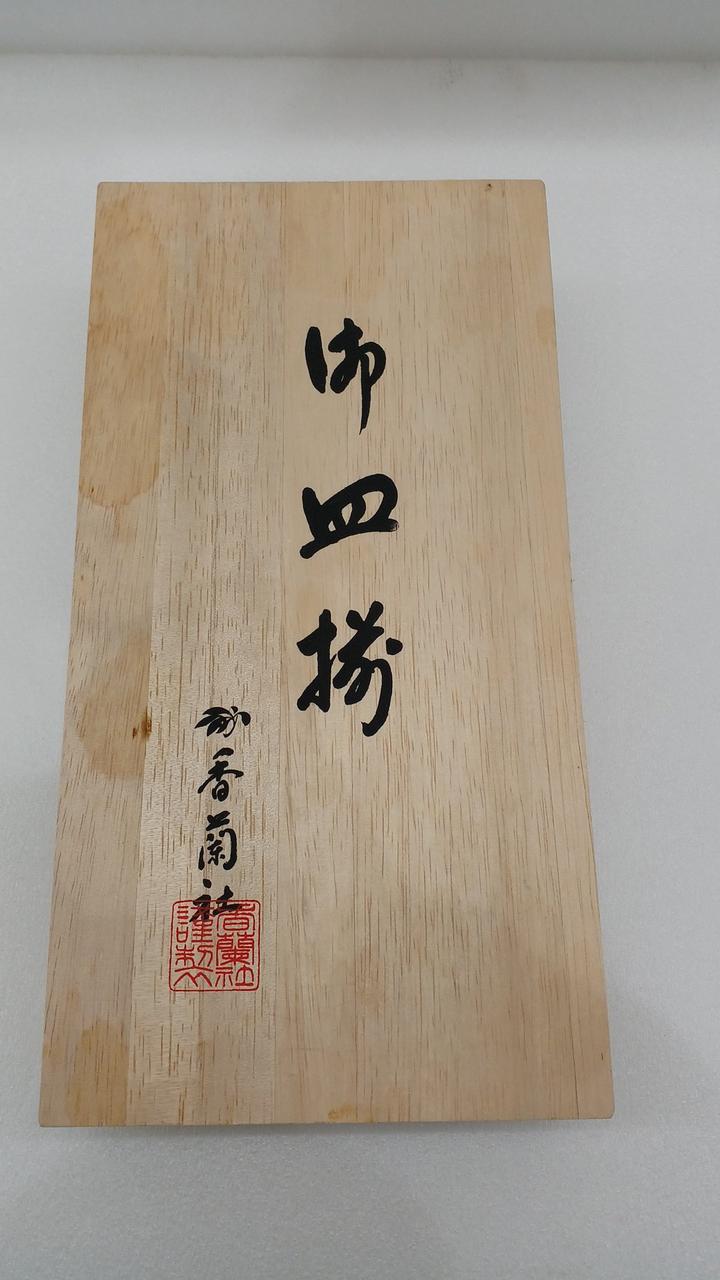 御皿揃
香蘭社
香蘭社
謹製